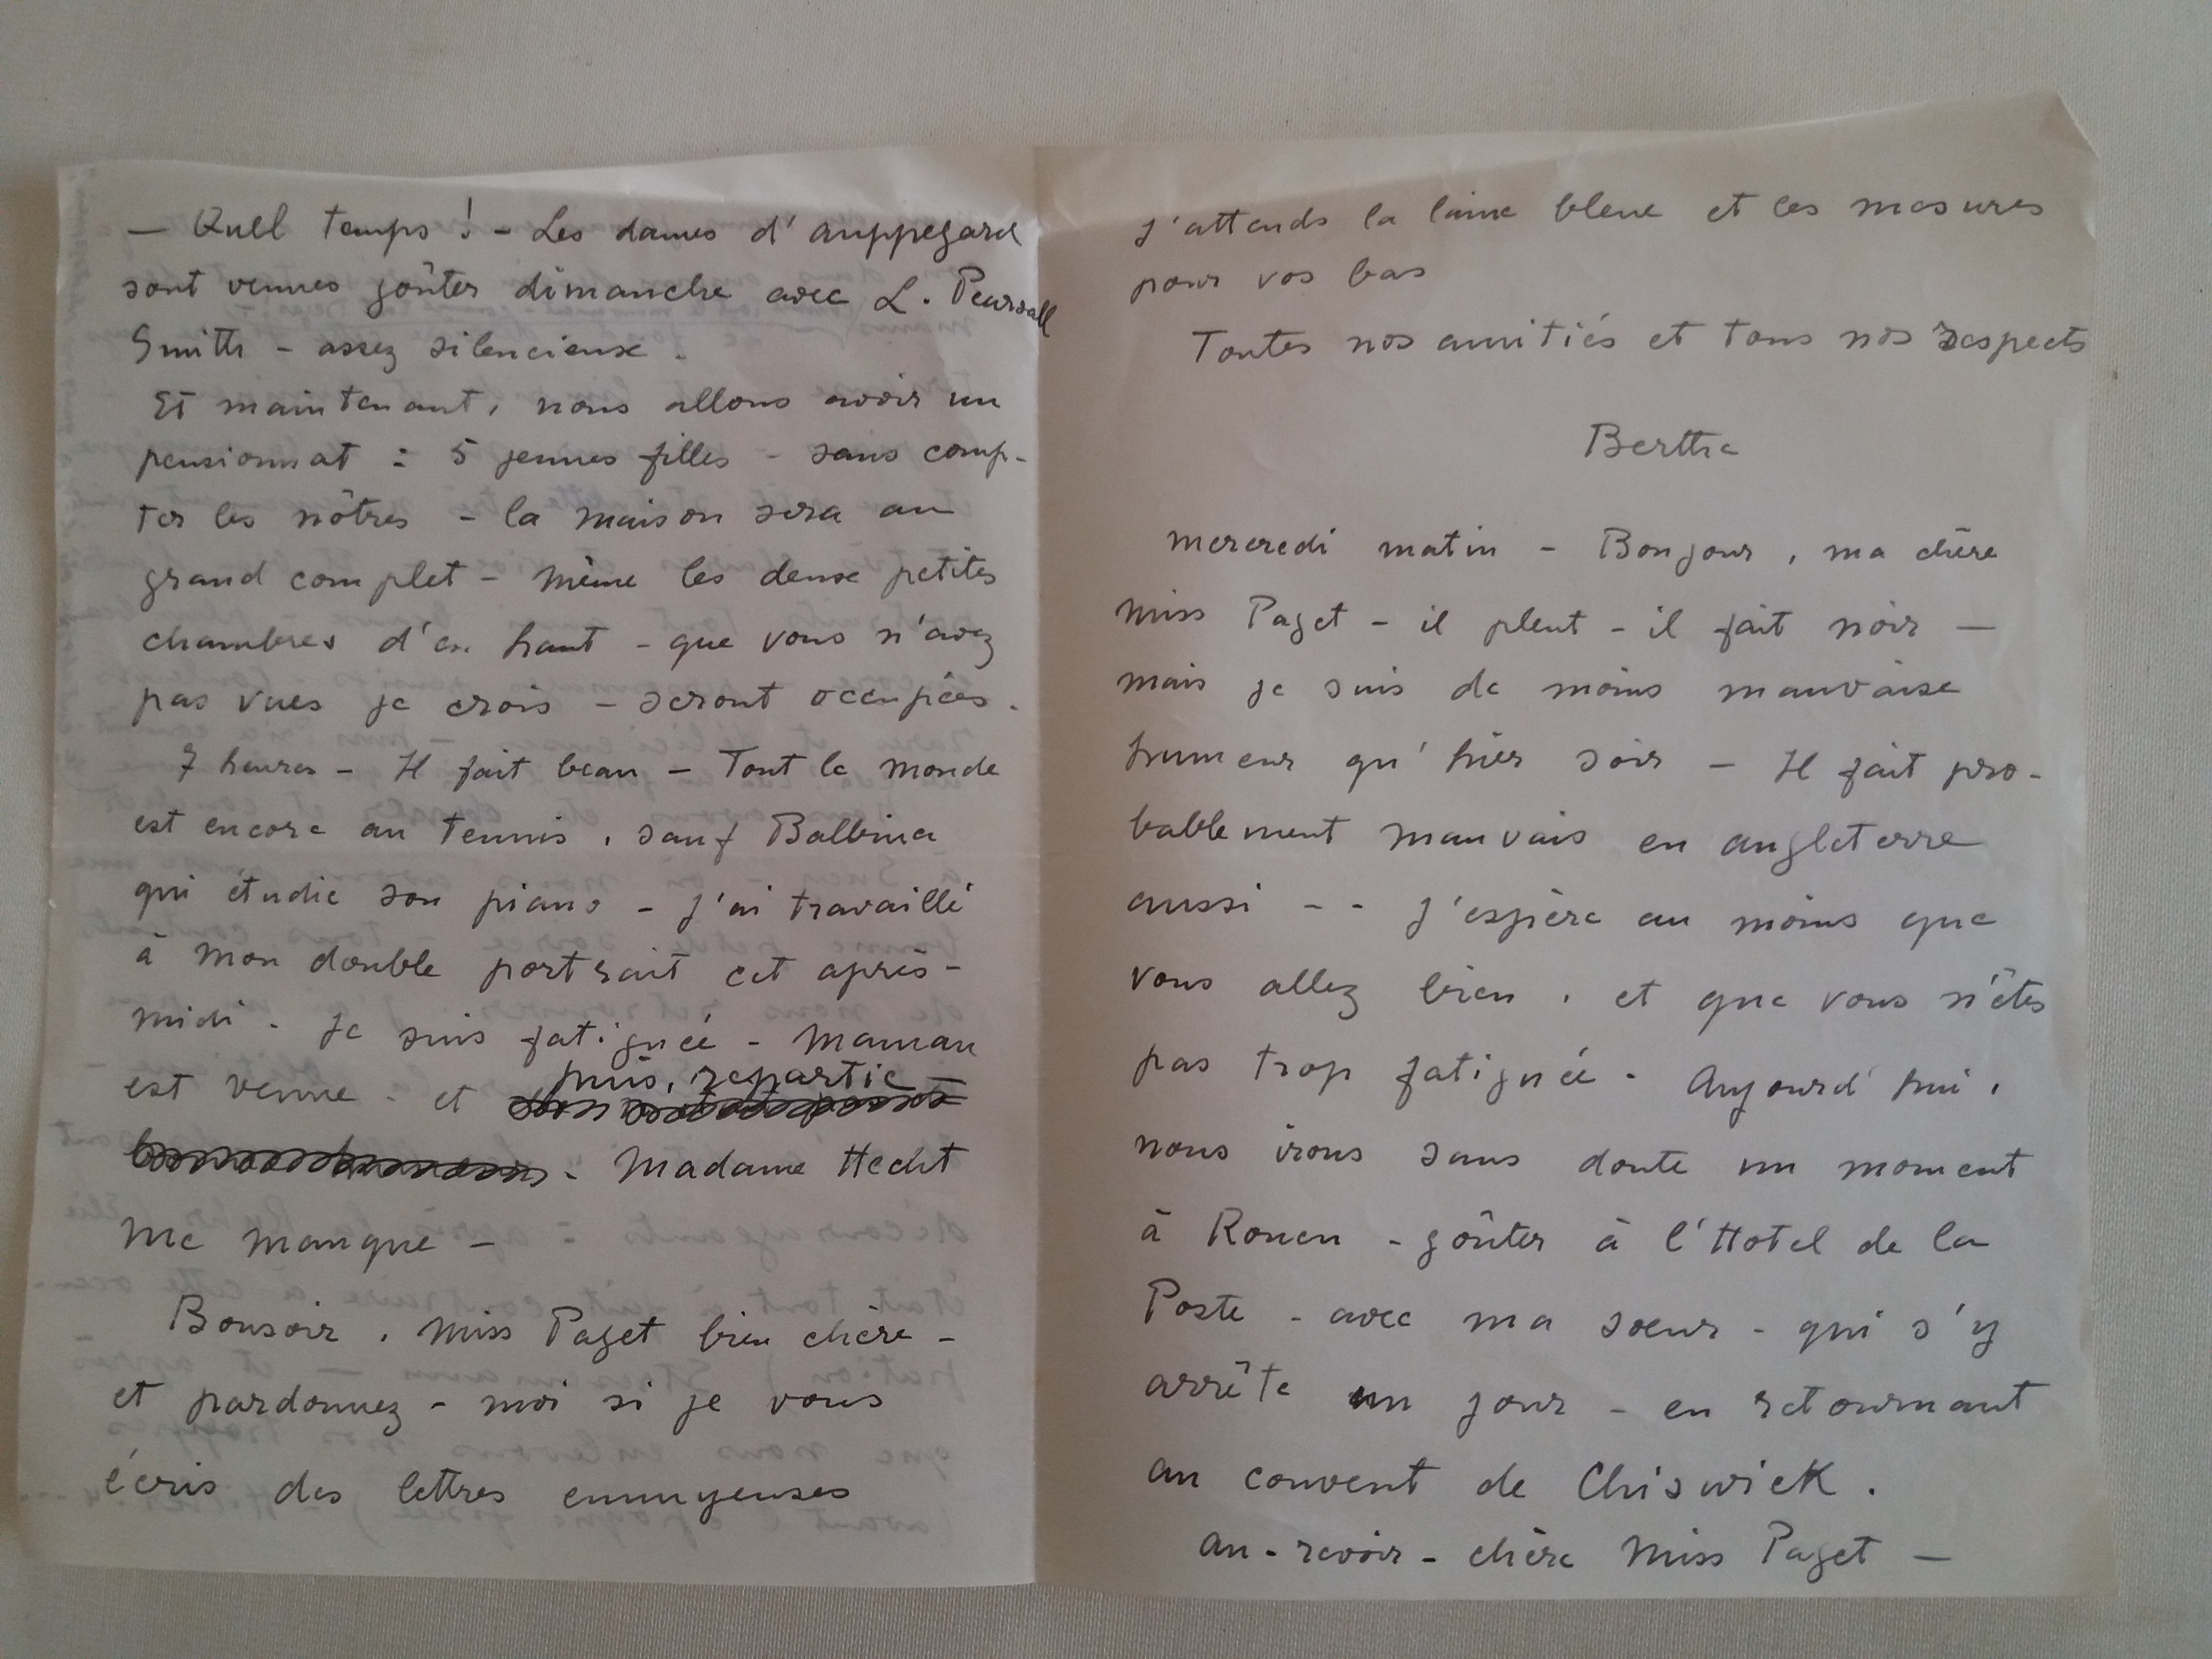 — Quel temps ! - Les dames d'auppegard
sont venues goûter dimanche avec L. Pearsall
Smith - assez silencieux.
Et maintenant, nous allons avoir un
pensionnat : 5 jeunes filles - sans comp-
ter les nôtres - la maison sera au
grand complet - même les deux petites
chambres d'en haut - que vous n'avez
pas vues je crois - seront occupées.
7 heures - Il fait beau - Tout le monde
est encore au tennis, sauf Balbina
qui étudie son piano - j'ai travaillé
à mon double portrait cet après-
midi. Je suis fatiguée - Maman
puis, repartie -
est venue - et
- Madame Hecht
me manque -
Bonsoir, Miss Paget bien chère -
et pardonnez-moi si je vous
écris des lettres ennuyeuses
j'attends la laine bleue et les mesures
pour vos bas
Toutes nos amitiés et tous nos respects
Berthe
mercredi matin - Bonjour, ma chère
miss Paget - il pleut - il fait noir —
mais je suis de moins mauvaise
humeur qu'hier soir - Il fait pro-
bablement mauvais en angleterre
aussi - - j'espère au moins que
vous allez bien, et que vous n'êtes
pas trop fatiguée. Aujourd'hui,
nous irons sans doute un moment
à Rouen - goûter à l'Hotel de la
Poste - avec ma soeur - qui s'y
arrête un jour - en retournant
au couvent de Chiswick.
au-revoir - chère Miss Paget —